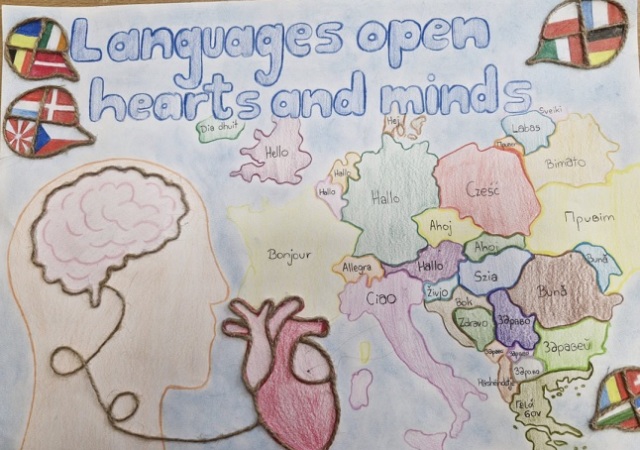 Languages open
hearts and minds
Sveiki
Dia dhuit
Hej
Labas
Hello
Hallo
Bimato
Hallo
Hallo
Cześć
Привіт
Ahoj
Ahoj
Bonjour
Allegra
Hallo
Szia
Bună
Bună
Ciao
Živjo
Bok
Zdravo
Здраво
Здравей
Здраво
Γειά
σου